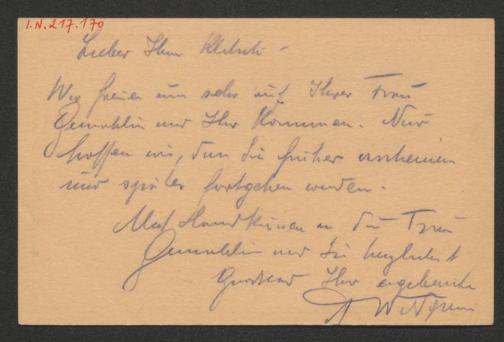 I.N. 217.170
Lieber Herr
Wir freuen uns sehr auf Ihrer Frau
Gemahlin und Ihr Kommen. Nur
hoffen wir, dass Sie früher erscheinen
und später fortgehen werden.
Mit Handküssen an die Frau
Gemahlin und Sie herzlichst
grüssend Ihr ergebenster